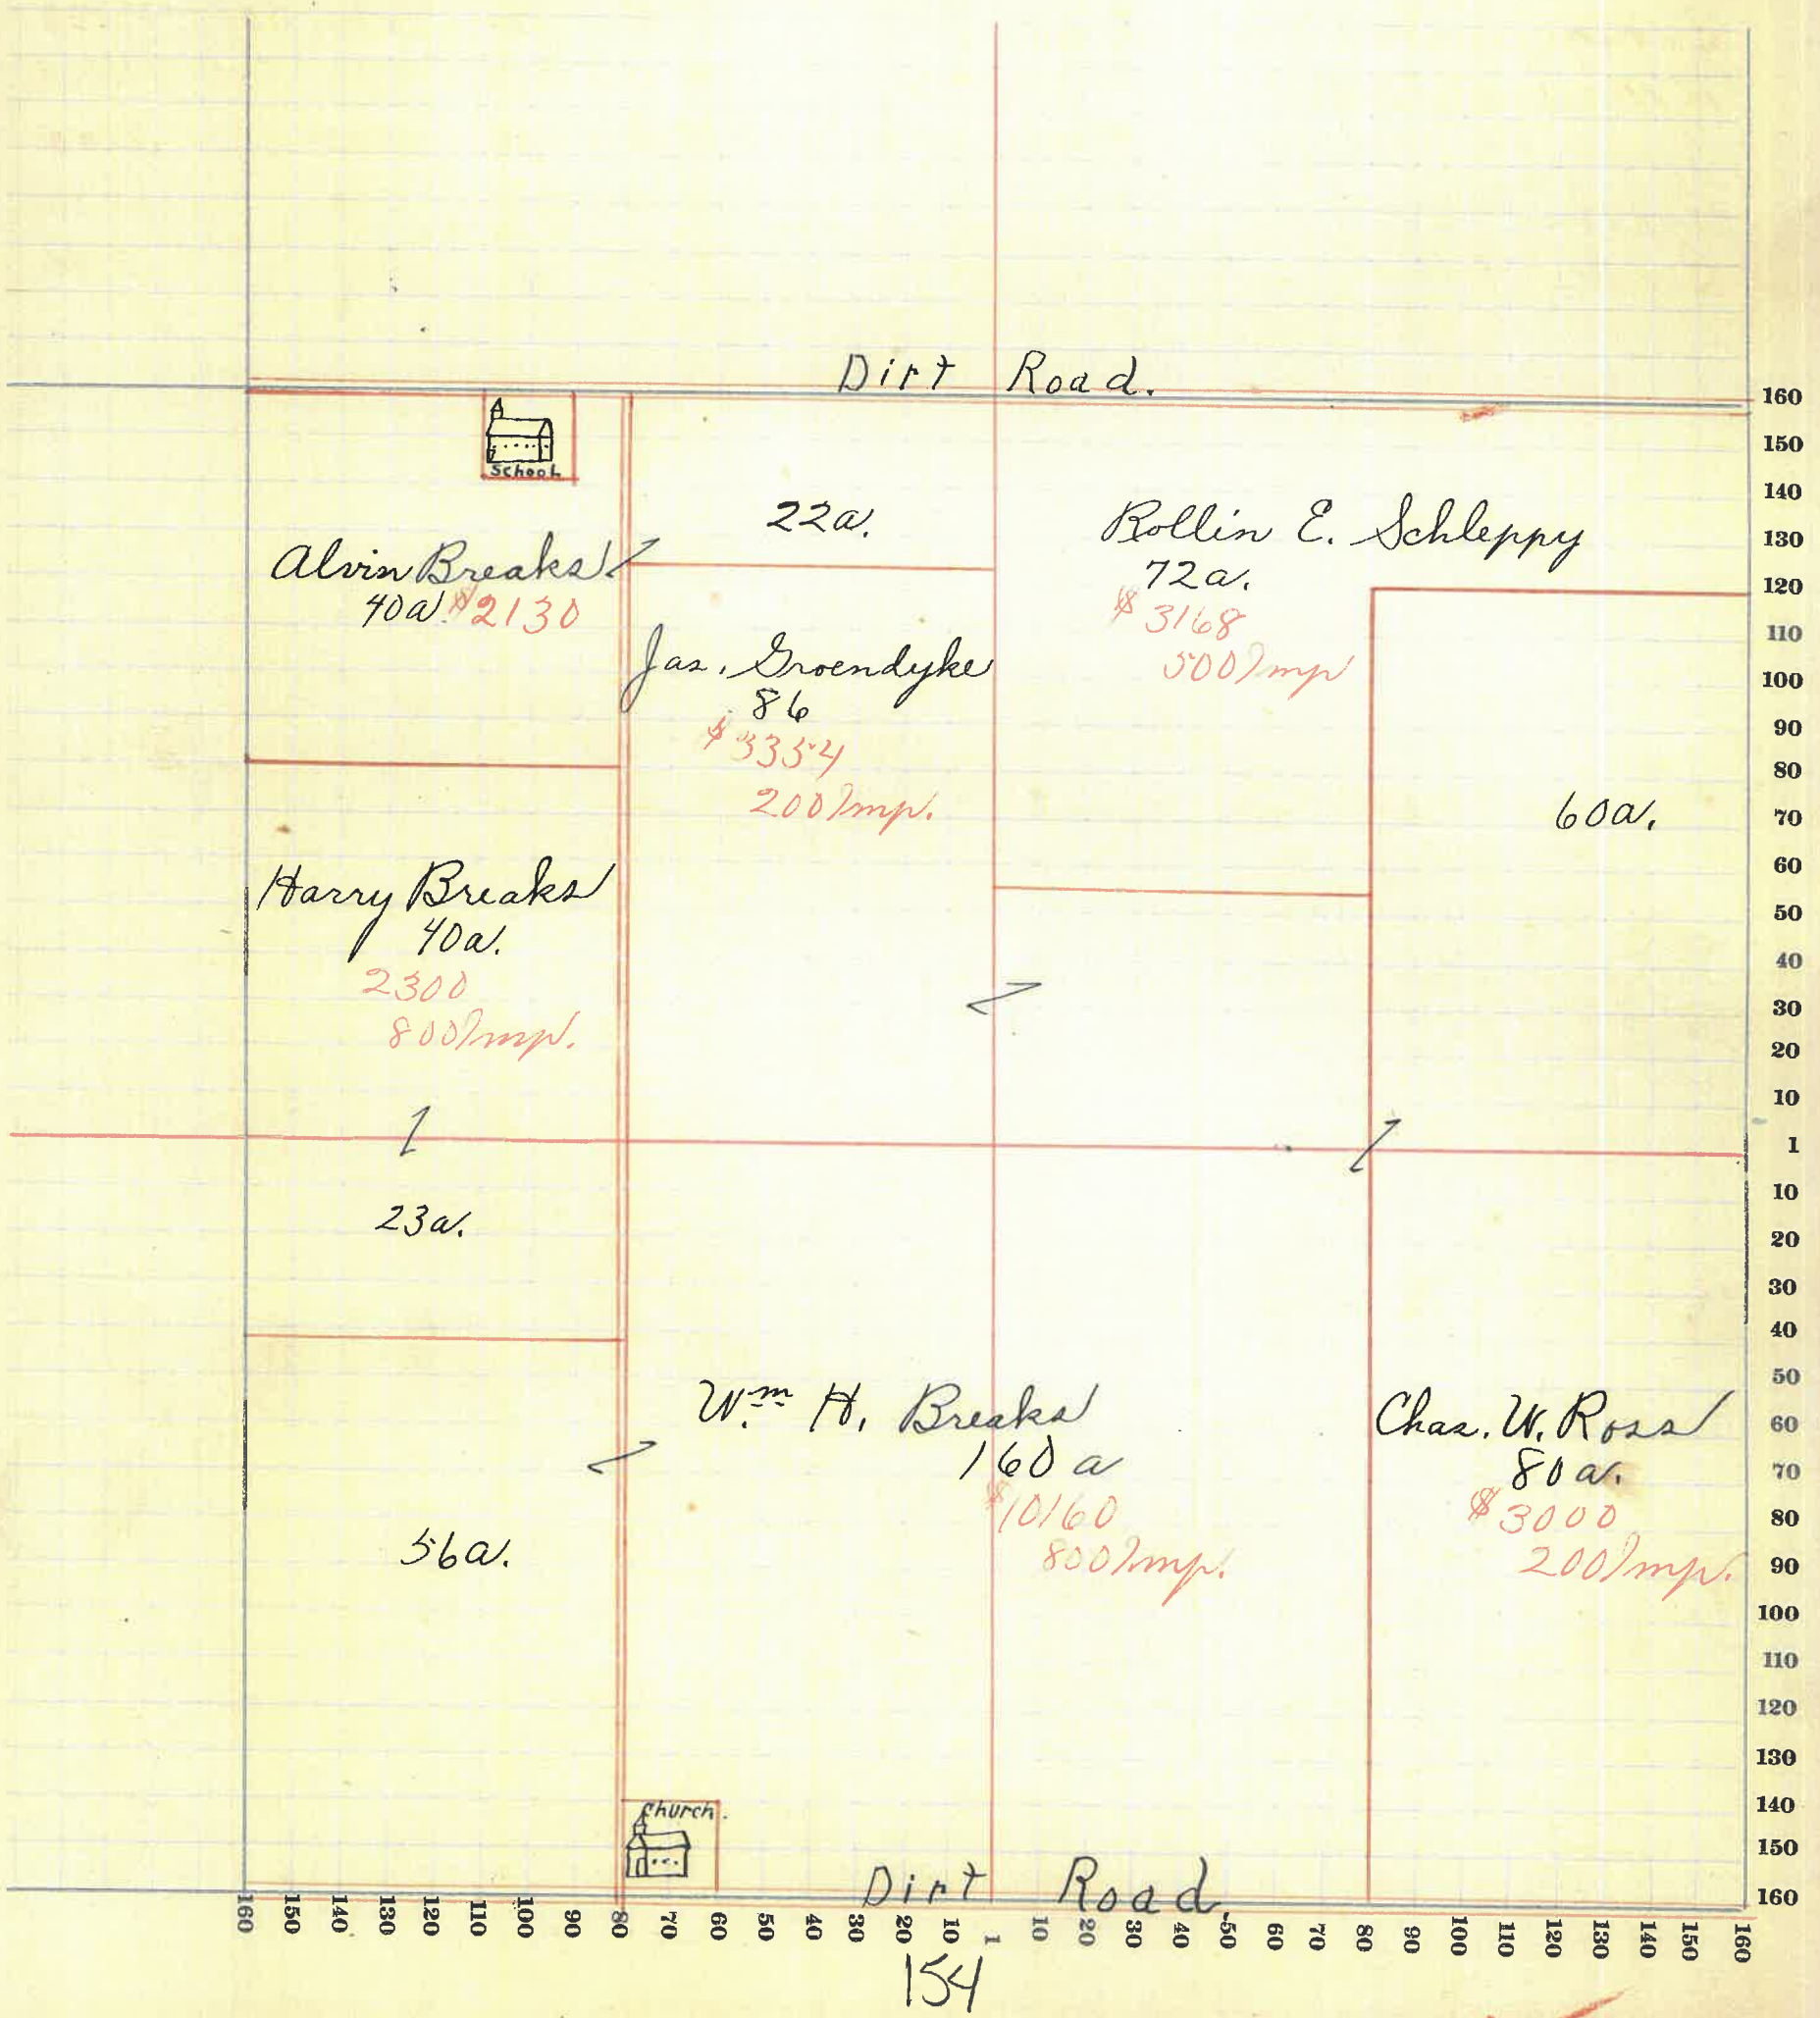 Dirt Road.
School
Alvin Breaks
40a. $2130
22a.
Jas. Groendyke
86
$3354
200 Imp.
Rollin E. Schleppy
72a.
$3168
500 Imp
60a.
Harry Breaks
40a.
2300
800 Imp.
23a.
56a.
Wm H. Breaks
160 a
$10160
800 Imp.
Chas. W. Ross
80a.
$3000
200 Imp.
Church.
Dirt Road.
160
150
140
130
120
110
100
90
80
70
60
50
40
30
20
10
1
10
20
30
40
50
60
70
80
90
100
110
120
130
140
150
160
160 150 140 130 120 110 100 90 80 70 60 50 40 30 20 10 1 10 20 30 40 50 60 70 80 90 100 110 120 130 140 150 160
154